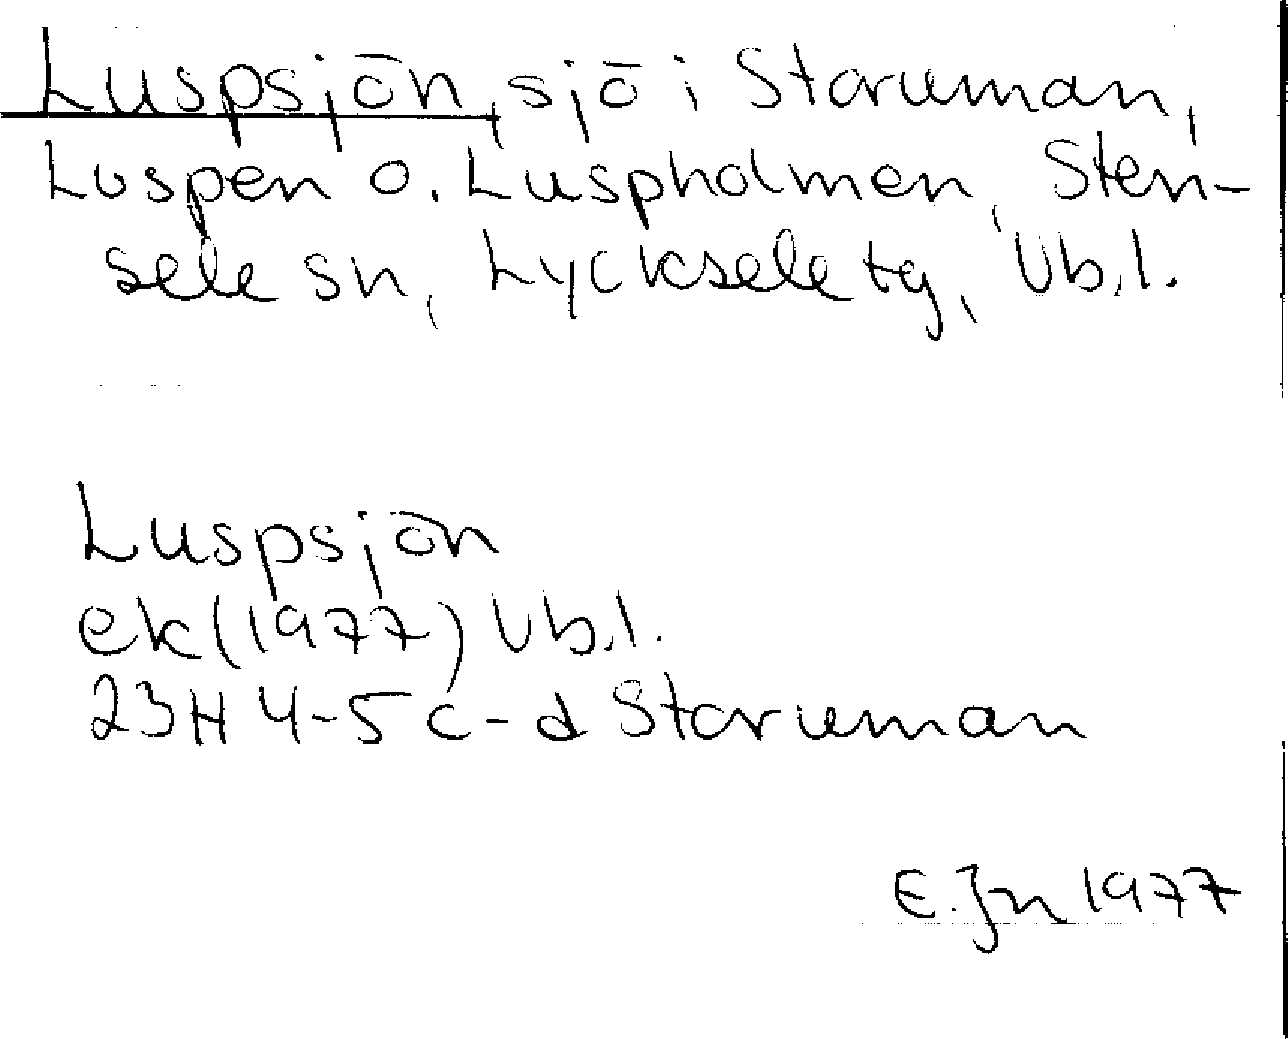 Luspsjön, sjö i Storuman,
Luspen o. Luspholmen, Sten-
sele sn, Lycksele tg, Vb.l.
Luspsjön
ek (1977) Vb.l.
23H 4-5 c-d Storuman
E. Jn 1977